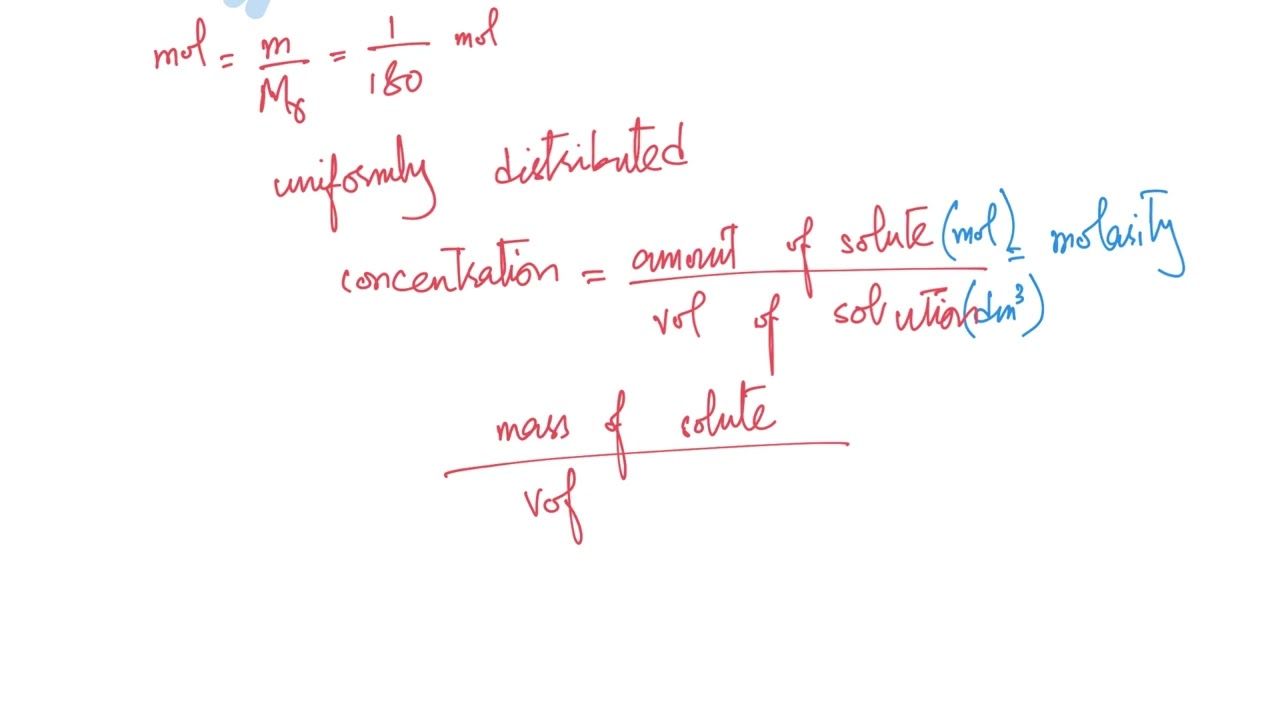 mol = m/Mr = 1/180 mol
uniformly distributed
concentration = amount of solute (mol) / vol of solution (dm³) = molarity
mass of solute
vof